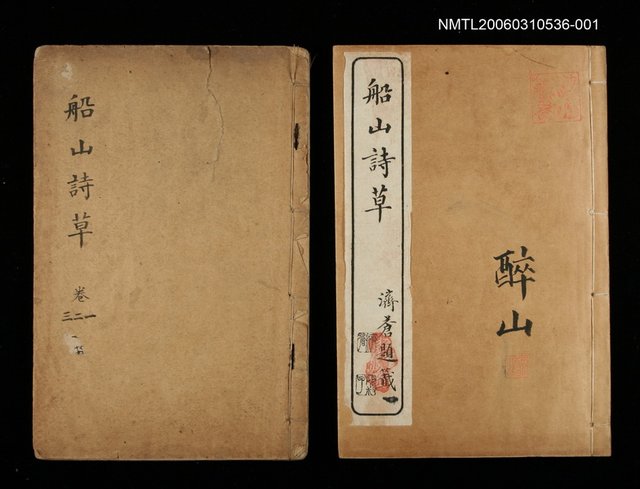 NMTL20060310536-001
船山詩草
卷
三二一
船山詩草
濟蒼題籤
醉山